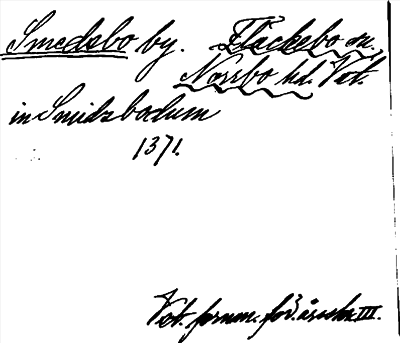 Smedsbo by. Fläckebo sn.
Norrbo hd. Vst.
in Smidzbodum
1371.
Vst. fornm. för. årsskr. III.